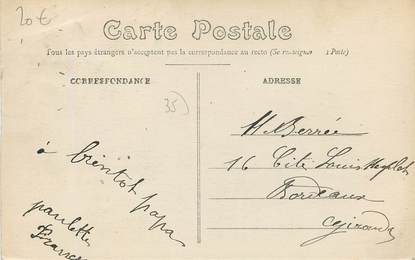 20€
Carte Postale
Tous les pays étrangers n'acceptent pas la correspondance au recto (Se renseigner à la Poste)
CORRESPONDANCE
ADRESSE
35
à bientot papa
paulette
France
M. Berrée
16 Cité Louis
Bordeaux
Gironde